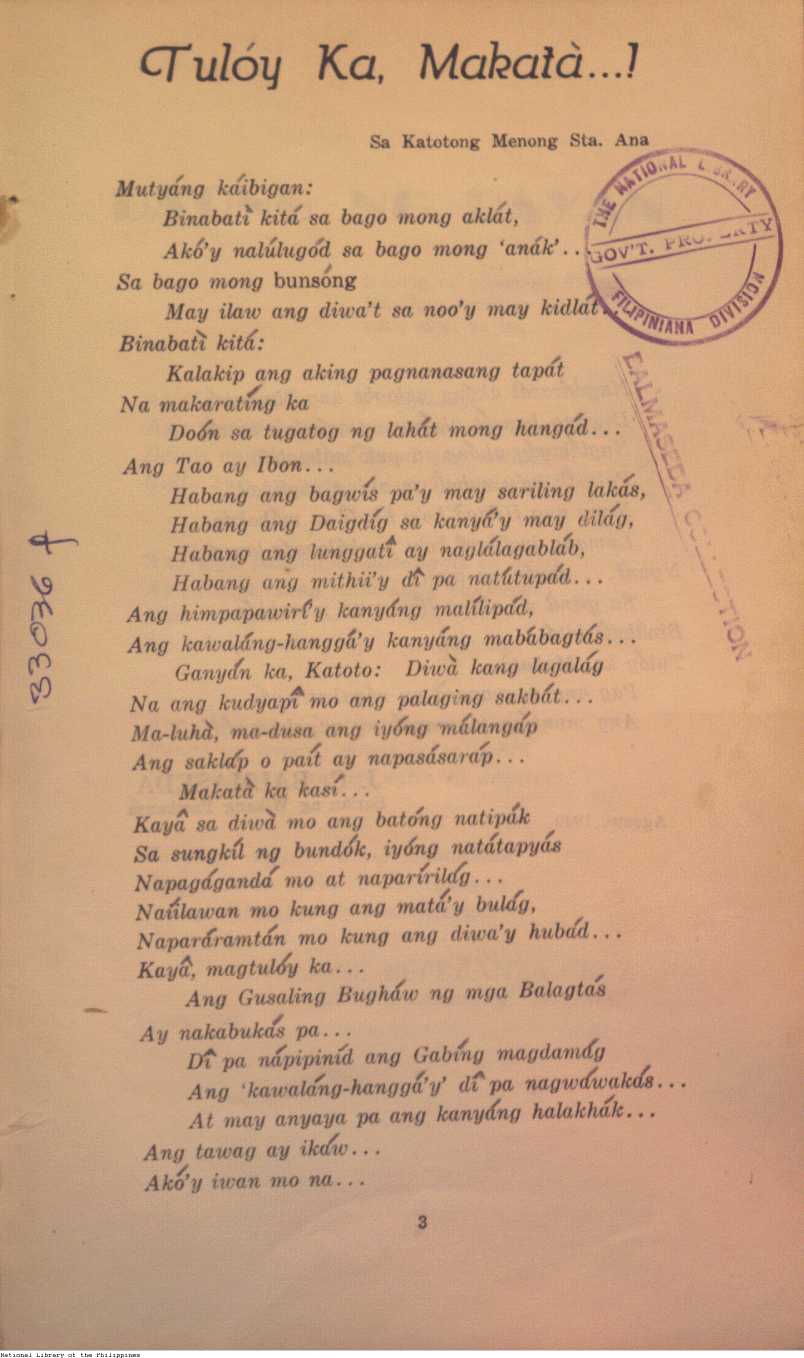 Tulóy Ka, Makatà...!
Sa Katotong Menong Sta. Ana
THE NATIONAL LIBRARY
GOV'T. PROPERTY
FILIPINIANA DIVISION
Mutyáng káibigan:
Binabatì kitá sa bago mong aklát,
Akó'y nalúlugód sa bago mong 'anák'...
Sa bago mong bunsóng
May ilaw ang diwa't sa noo'y may kidlát...
Binabatì kitá:
Kalakip ang aking pagnanasang tapát
Na makaratíng ka
Doón sa tugatog ng lahát mong hangád...
Ang Tao ay Ibon...
Habang ang bagwís pa'y may sariling lakás,
Habang ang Daigdíg sa kanyá'y may dilág,
Habang ang lunggatî ay naglálagabláb,
Habang ang mithii'y dî pa natútupád...
Ang himpapawirí'y kanyáng malílipád,
Ang kawaláng-hanggá'y kanyáng mabábagtás...
Ganyán ka, Katoto: Diwà kang lagalág
Na ang kudyapî mo ang palaging sakbát...
Ma-luhà, ma-dusa ang iyóng málangáp
Ang sakláp o paít ay napasásaráp...
Makatà ka kasí...
Kayâ sa diwà mo ang batóng natipák
Sa sungkíl ng bundók, iyóng natátapyás
Napagágandá mo at naparírilág...
Naíilawan mo kung ang matá'y bulág,
Naparáramtán mo kung ang diwa'y hubád...
Kayâ, magtulóy ka...
Ang Gusaling Bugháw ng mga Balagtás
Ay nakabukás pa...
Dî pa nápipiníd ang Gabíng magdamág
Ang 'kawaláng-hanggá'y' dî pa nagwáwakás...
At may anyaya pa ang kanyáng halakhák...
Ang tawag ay ikáw...
Akó'y iwan mo na...
3
DALMASEDA COLLECTION
33036
National Library of the Philippines